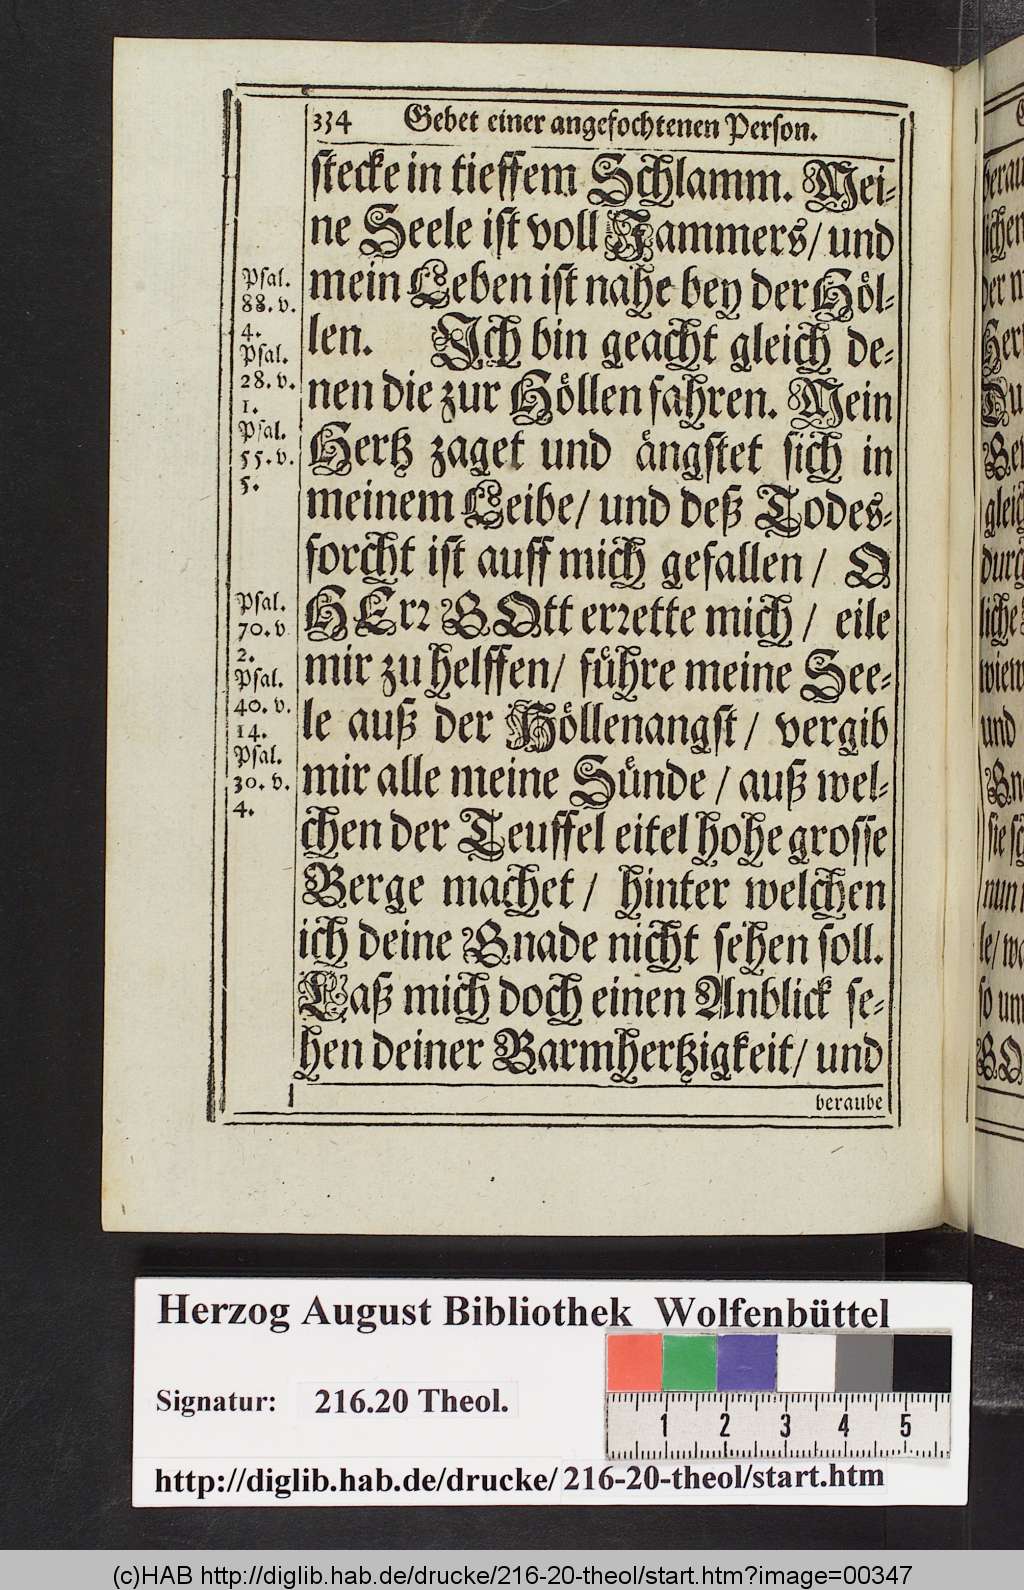 334 Gebet einer angefochtenen Person.
stecke in tieffem Schlamm. Mei-
ne Seele ist voll Jammers/ und
mein Leben ist nahe bey der Höl-
len. Ich bin geacht gleich de-
nen die zur Höllen fahren. Mein
Hertz zaget und ängstet sich in
meinem Leibe/ und deß Todes-
forcht ist auff mich gefallen/ O
HErr GOtt errette mich/ eile
mir zu helffen/ führe meine See-
le auß der Höllenangst/ vergib
mir alle meine Sünde/ auß wel-
chen der Teuffel eitel hohe grosse
Berge machet/ hinter welchen
ich deine Gnade nicht sehen soll.
Laß mich doch einen Anblick se-
hen deiner Barmhertzigkeit/ und
beraube
Psal.
88. v.
4.
Psal.
28. v.
1.
Psal.
55. v.
5.
Psal.
70. v
2.
Psal.
40. v.
14.
Psal.
30. v.
4.
Herzog August Bibliothek Wolfenbüttel
Signatur: 216.20 Theol.
1 2 3 4 5
http://diglib.hab.de/drucke/216-20-theol/start.htm
(c)HAB http://diglib.hab.de/drucke/216-20-theol/start.htm?image=00347